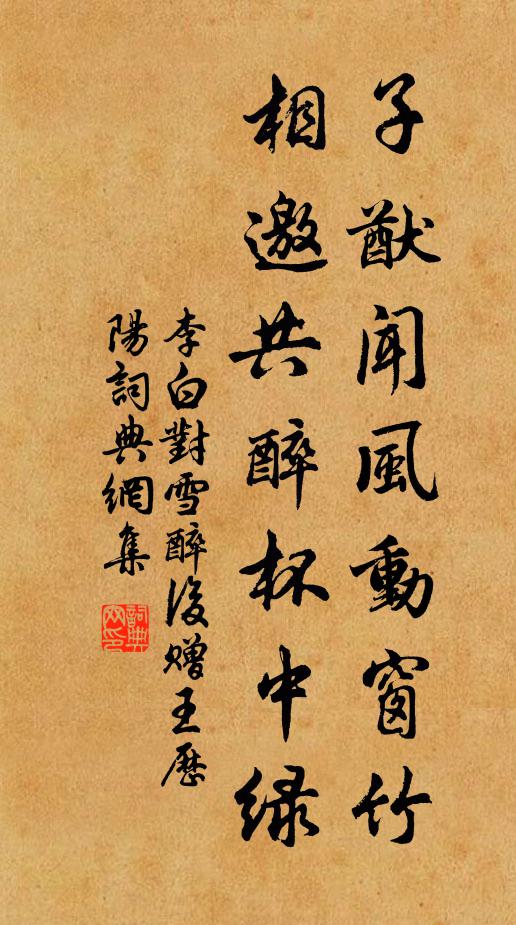 子猷聞風動窗竹
相邀共醉杯中緑
李白對雪醉後贈王歷
陽詞典網集
詞典
网印